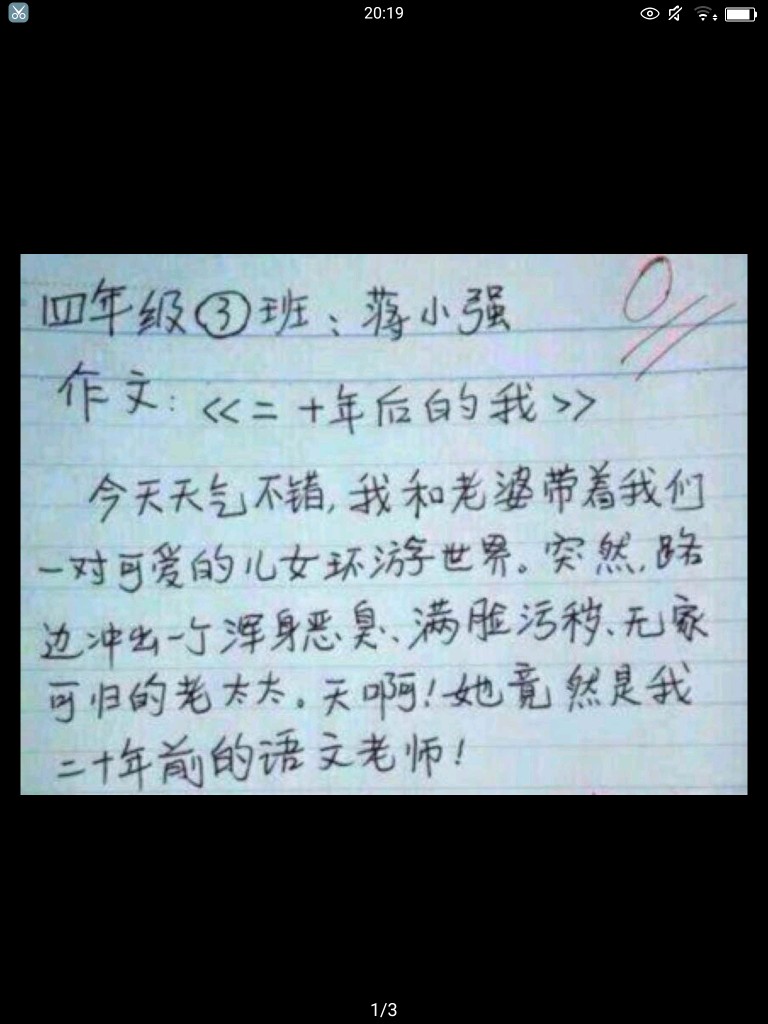 20:19
四年级③班：蒋小强
0
作文：<<二十年后的我>>
今天天气不错，我和老婆带着我们
一对可爱的儿女环游世界。突然，路
边冲出一个浑身恶臭、满脏污秽、无家
可归的老太太。天啊！她竟然是我
二十年前的语文老师！
1/3